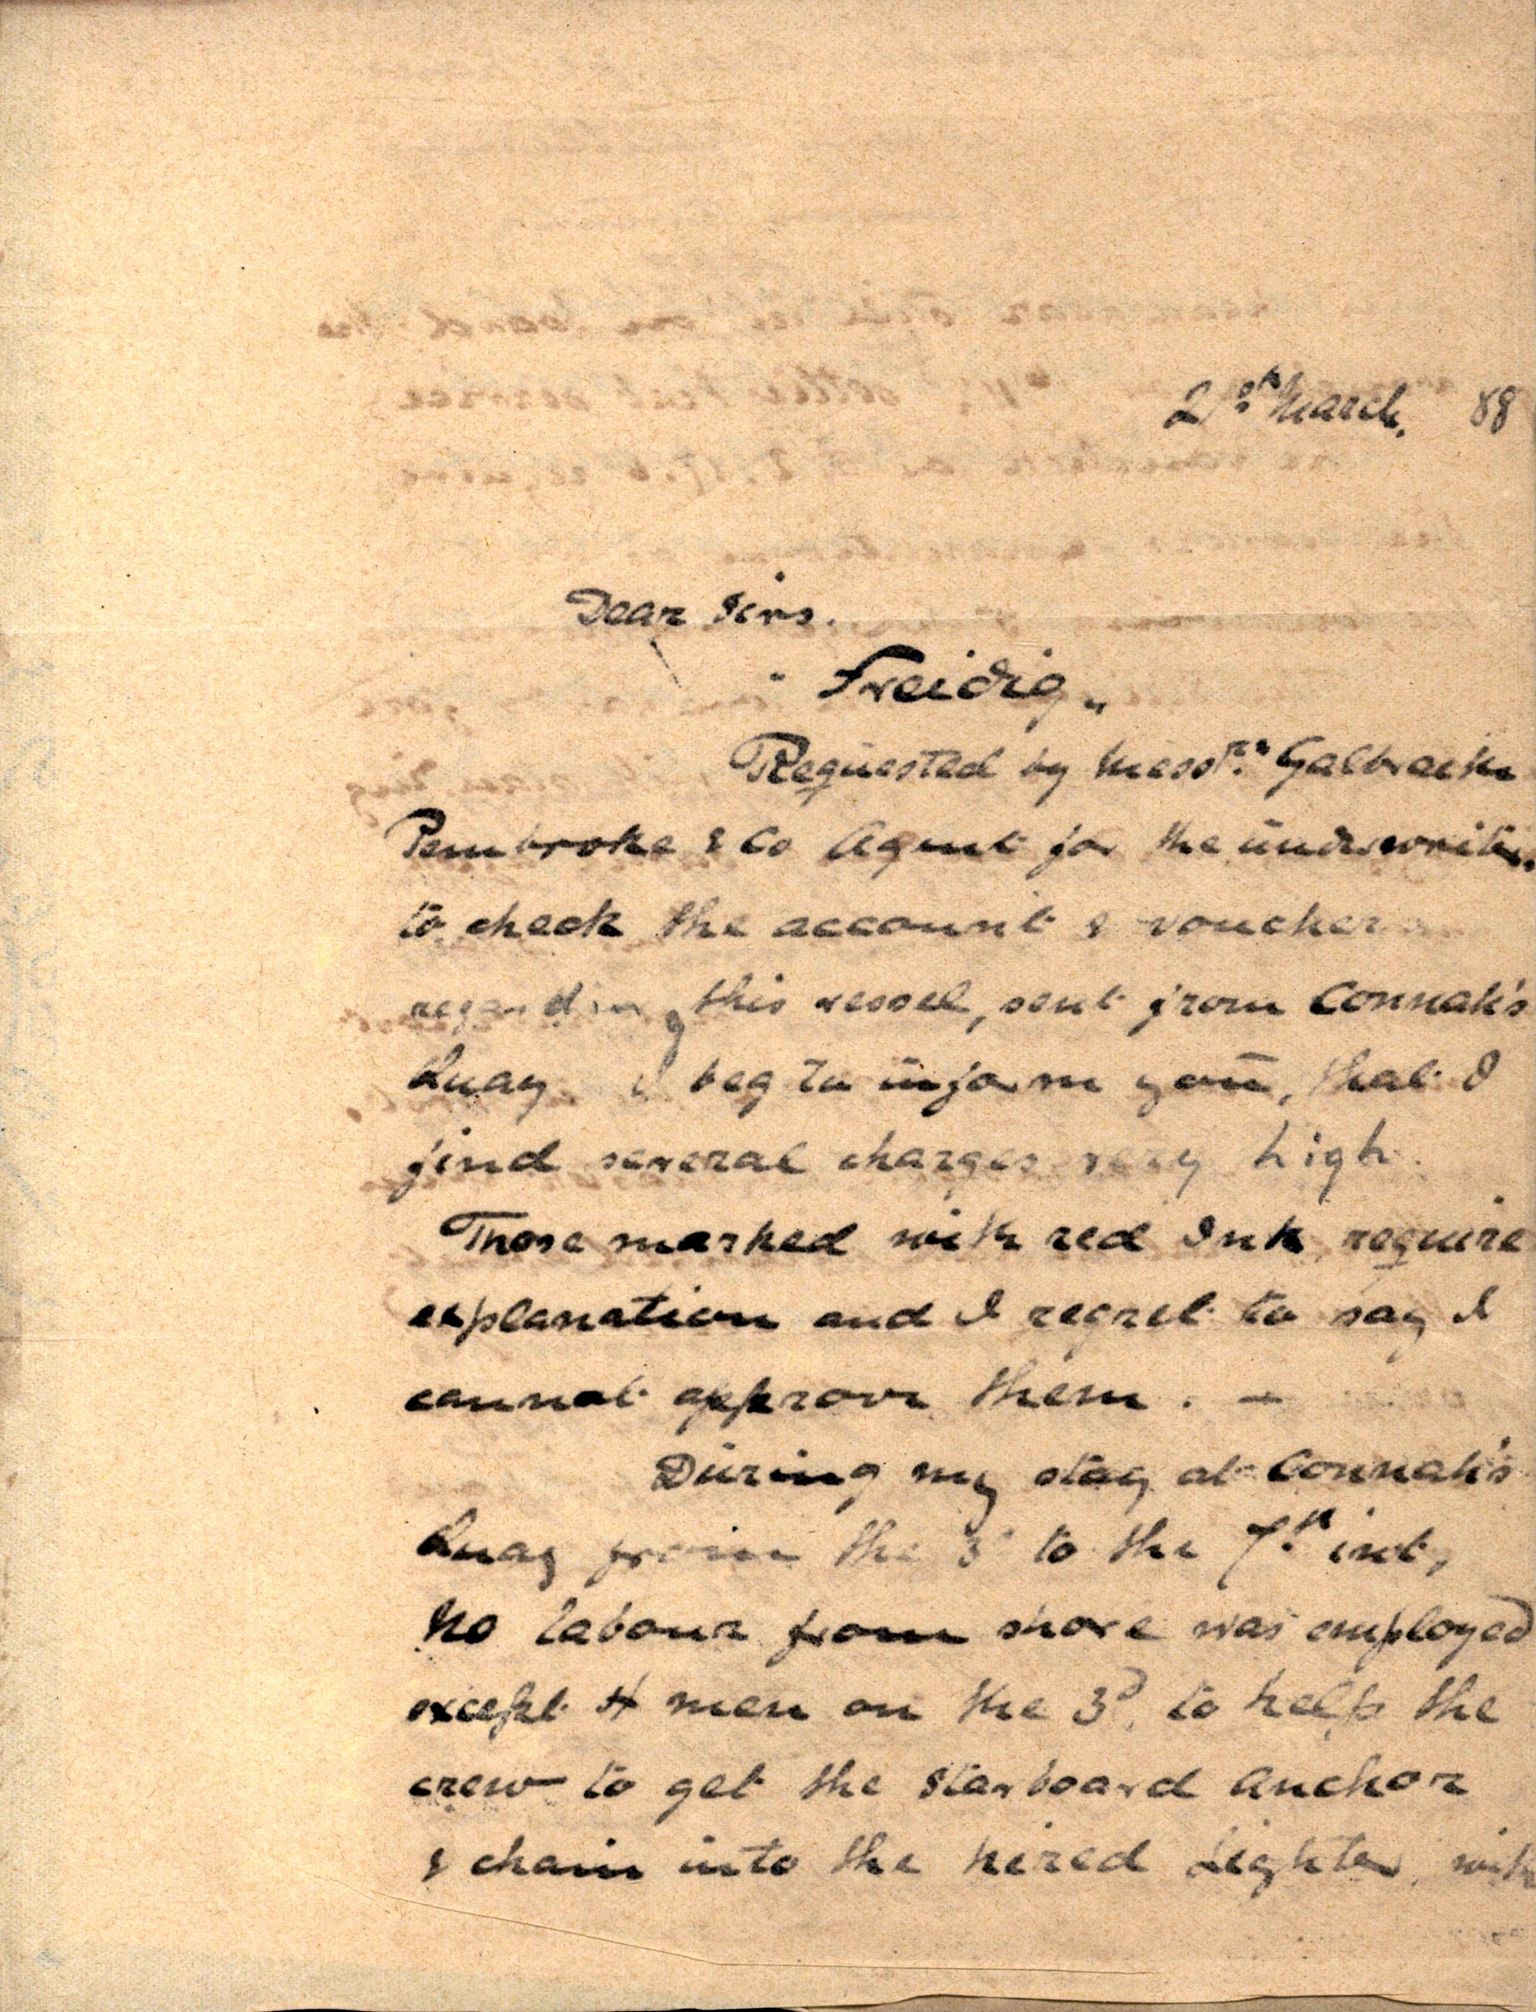 21st March. 88
Dear Sirs.
"Freidig"
Requested by Messrs. Galbraith
Pembroke & Co Agent for the underwriters
to check the account & voucher
regarding this vessel, sent from Connah's
Quay I beg to inform you, that I
find several charges very high.
Those marked with red Ink require
explanation and I regret to say I
cannot approve them. —
During my stay at Connah's
Quay from the 3d to the 7th inst,
No labour from shore was employed
except 4 men on the 3d. to help the
crew to get the starboard anchor
& chain into the hired Lighter with